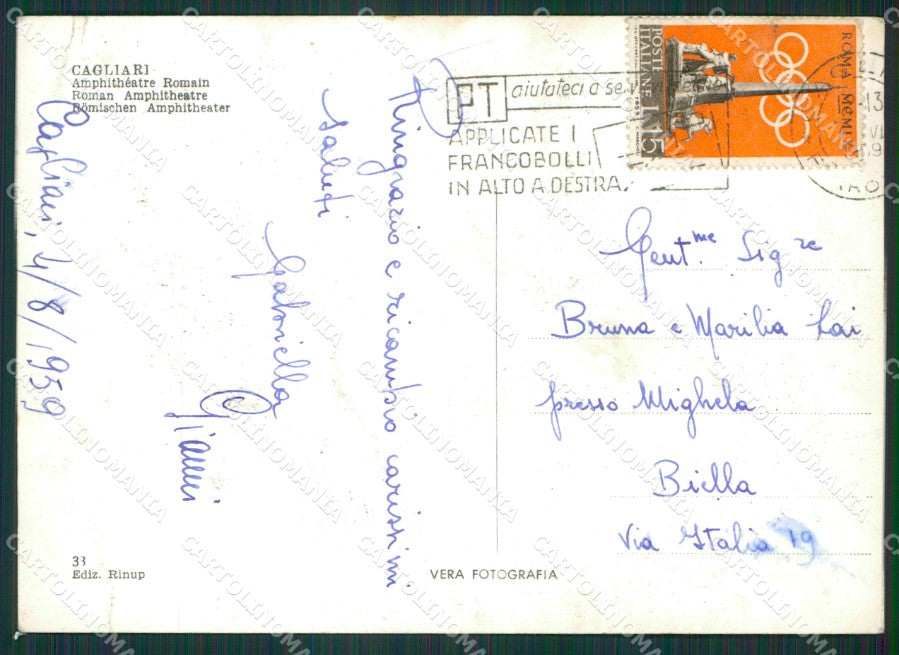 CAGLIARI
Amphithéatre Romain
Roman Amphitheatre
Römischen Amphitheater
Cagliari, 4/8/1959
Ringrazio e ricambio carissimi
saluti
Gabriella
Gianni
PT aiutateci a se
APPLICATE I
FRANCOBOLLI
IN ALTO A DESTRA
POSTE
ITALIANE L.15
ROMA MCMLX
Gent.me Sig.re
Bruna e Marilia Lai
presso Mighela
Biella
Via Italia 19
33
Ediz. Rinup
VERA FOTOGRAFIA
CARTOLINOMANIA